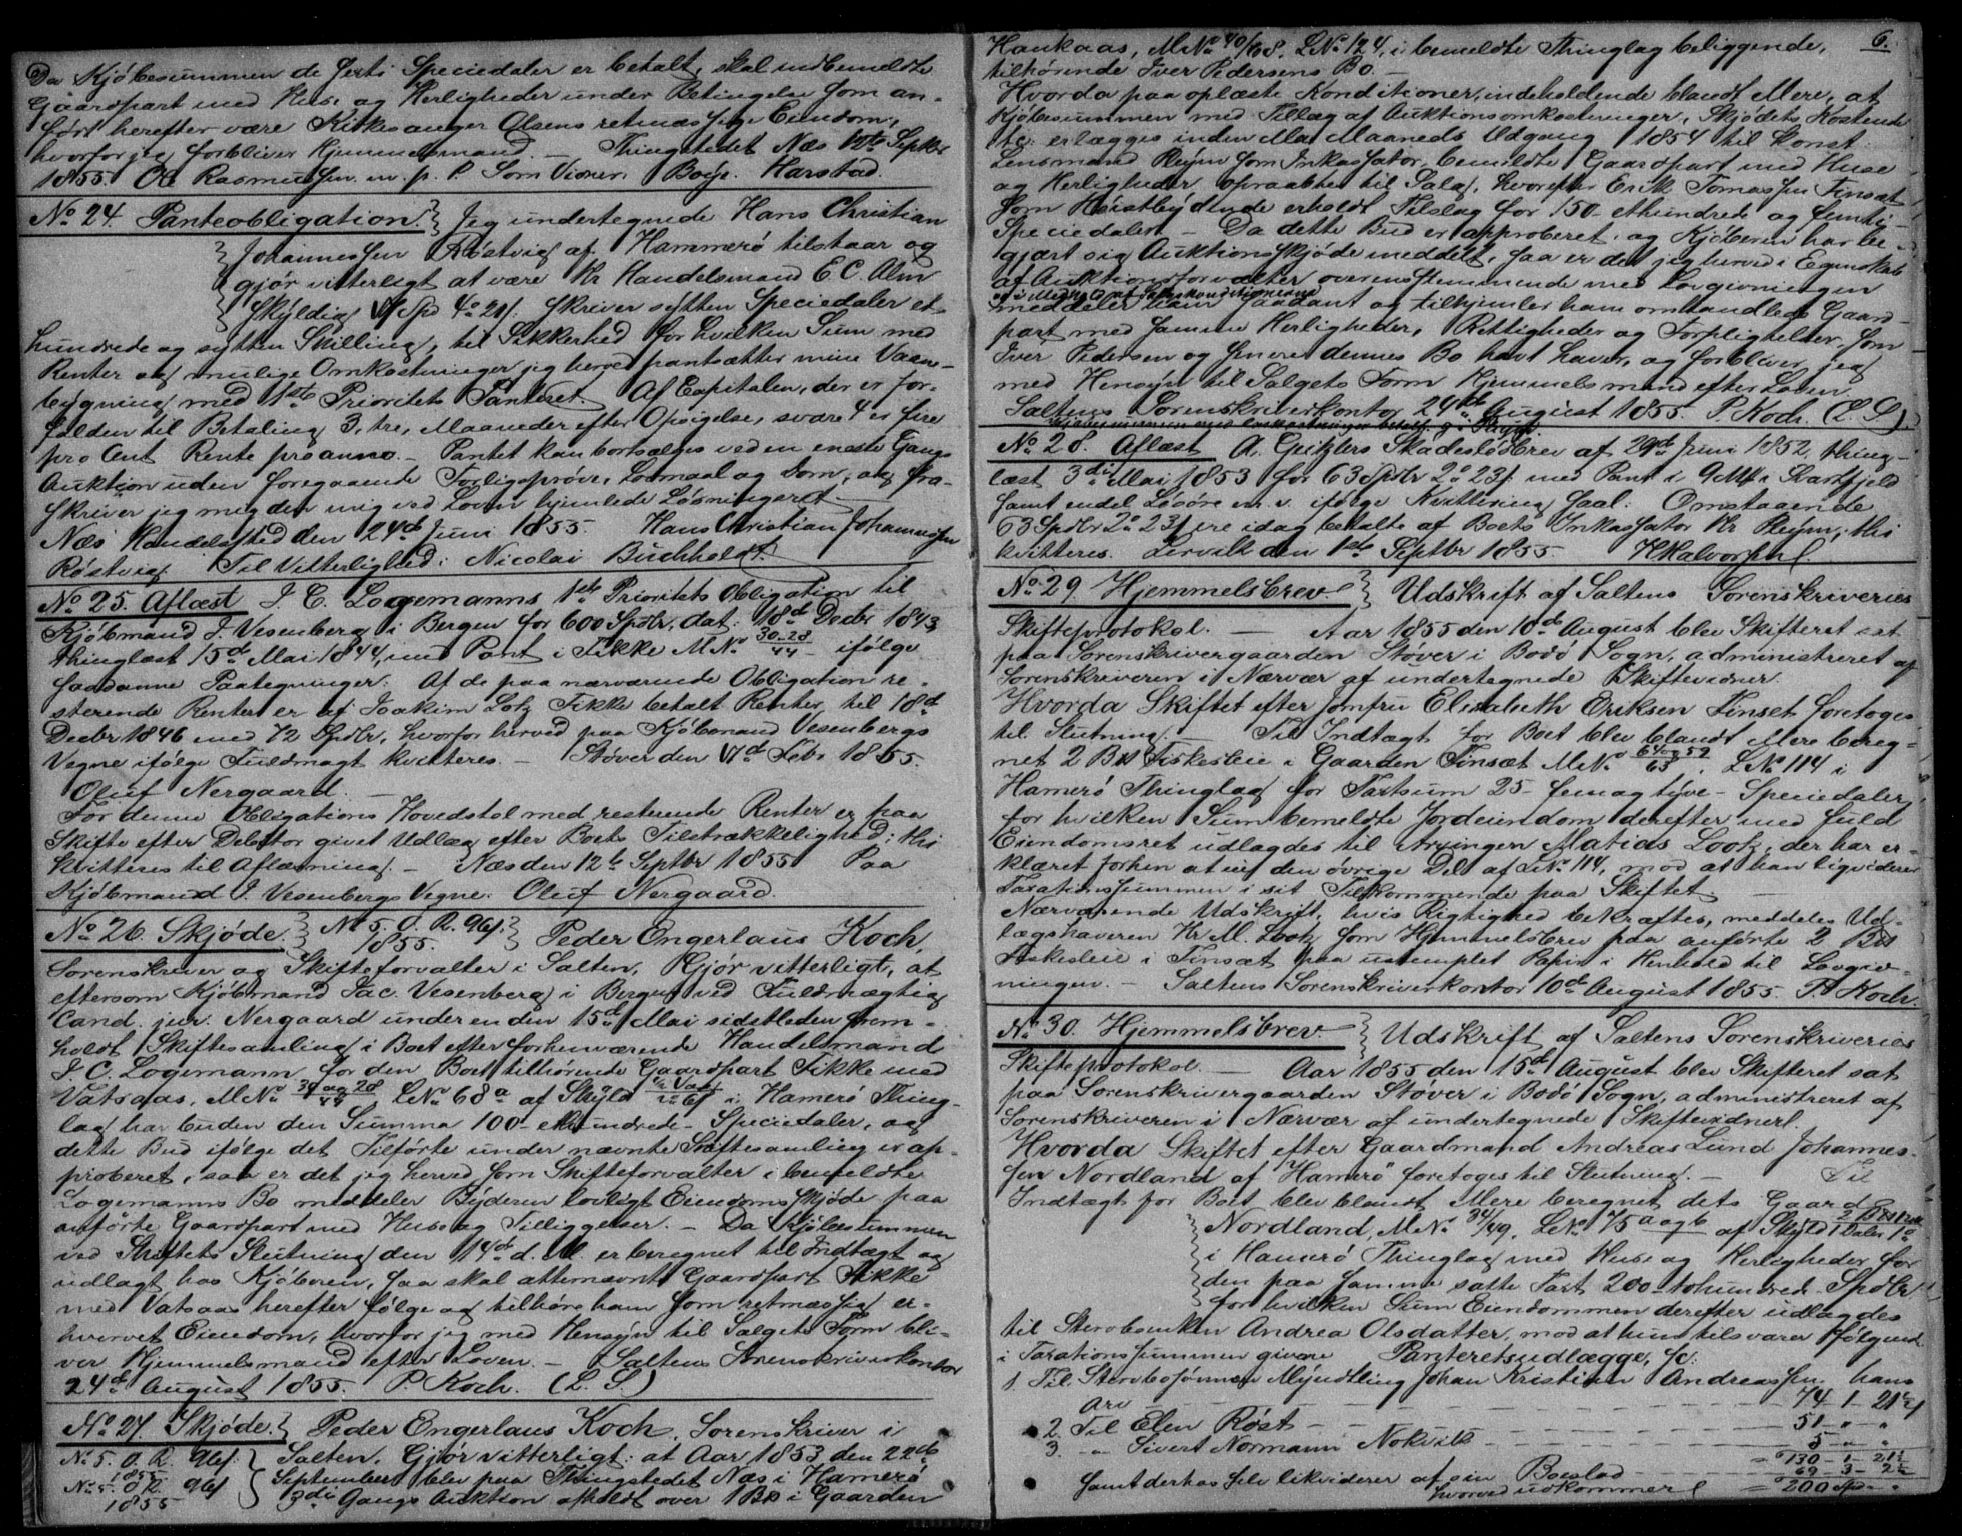 Da Kjøbesummen de førti Speciedaler er betalt, skal indbemeldte
Gaardspart med Huse og Herligheder under Betingelse som an-
ført herefter være Kirkesanger Olsens retmæssige Eiendom,
hvorfor jeg forbliver Hjemmelsmand. — Thingstedet Næs 12te Septbr
1855. Ole Rasmussen m. p. P. Som Vidner: Boye. Harstad.
No 24. Panteobligation. Jeg undertegnede Hans Christian
Johannessen Røstvig af Hammerø tilstaar og
gjør vitterligt at være Hr Handelsmand E. C. Alm
skyldig 17 Spd 4 o 21 s. skriver sytten Speciedaler et-
hundrede og sytten Skilling, til Sikkerhed for hvilken Sum med
Renter og mulige Omkostninger jeg herved pantsætter mine Vaan-
bygning med 1ste Prioritets Panteret. Af Capitalen, der er for-
falden til Betaling 3, tre, Maaneder efter Opsigelse, svare 4 er fire
pro Cent Rente pro anno. — Pantet kan bortsælges ved en eneste Gangs
Auktion uden foregaaende Forligsprøve, Lovmaal og Dom, og fra-
skriver jeg mig den mig ved Loven hjemlede Løsningsret —
Næs Handelssted den 24de Juni 1855. Hans Christian Johannessen
Røstvig. Til Vitterlighed: Nicolai Buchholdt.
No 25. Aflæst J. C. Logemanns 1ste Prioritets Obligation til
Kjøbmand J. Vesenberg i Bergen for 600 Spdlr, dat: 18de Decbr 1843
thinglæst 15de Mai 1844, med Pant i Fikke MNo 30-28/44 ifølge
saadanne Paategninger: Af de paa nærværende Obligation re-
sterende Renter er af Joakim Lotz Fikke betalt Renter til 18de
Decbr 1846 med 72 Spdlr, hvorfor herved paa Kjøbmand Vesenbergs
Vegne ifølge Fuldmagt kvitteres. — Støver den 17de Febr 1855.
Oluf Nergaard. —
For denne Obligations Hovedstol med resterende Renter er paa
Skifte efter Debitor givet Udlæg efter Boets Tilstrækkelighed; thi
kvitteres til Aflæsning. — Næs den 12te Septbr 1855 Paa
Kjøbmand J. Vesenbergs Vegne: Oluf Nergaard.
No 26. Skjøde. No 5. O. R. 96 s. 1855. Peder Engerlaus Koch,
Sorenskriver og Skifteforvalter i Salten, Gjør vitterligt, at
eftersom Kjøbmand Jac. Vesenberg i Bergen ved Fuldmægtig
Cand. jur. Nergaard under en den 15de Mai sidstleden frem-
holdt Skiftesamling i Boet efter forhenværende Handelsmand
J. C. Logemann for den Boet tilhørende Gaardspart Fikke med
Vatsaas, MNo 30 og 28/44 LNo 68a af Skyld i Hamerø Thing-
lag har buden den Summa 100 - ethundrede - Speciedaler, og
dette Bud ifølge det Tilførte under nævnte Skiftesamling er ap-
proberet, saa er det jeg herved som Skifteforvalter i bemeldte
Logemanns Bo meddeler Byderen lovligt Eiendomsskjøde paa
anførte Gaardspart med Huse og Tilliggelser. — Da Kjøbesummen
ved Skiftets Slutning den 14de d. M. er beregnet til Indtægt og
udlagt hos Kjøberen, saa skal alternævnte Gaardspart Fikke
med Vatsaas herefter følge og tilhøre ham som retmæssig er-
hvervet Eiendom, hvorfor jeg med Hensyn til Salgets Form bli-
ver Hjemmelsmand efter Loven. — Saltens Sorenskriverkontor
24de August 1855. P. Koch. (L. S.)
No 27. Skjøde. Peder Engerlaus Koch, Sorenskriver i
No 5. O. R. 96 s. 1855 Salten, Gjør vitterligt: at Aar 1853 den 22de
No 5. O. R. 96 s Septembert blev paa Thingstedet Næs i Hamerø
1855 3die Gangs Auktion afholdt over 1 Bd i Gaarden
6.
Haukaas, MNo 40/68. LNo 124, i bemeldte Thinglag beliggende,
tilhørende Iver Pedersens Bo. —
Hvorda paa oplæste Konditioner, indeholdende blandt Mere, at
Kjøbesummen med Tillæg af Auktionsomkostninger, Skjødets Kostende
etc. erlægges inden Mai Maaneds Udgang 1854 til konst.
Lensmand Pleym som Inkassator, bemeldte Gaardspart med Huse
og Herligheder opraabtes til Salg, hvorefter Erik Tomassen Finsæt
som Høistbydende erholdt Tilslag for 150 - ethundrede og femti -
Speciedaler. — Da dette Bud er approberet, og Kjøberen har be-
gjært sig Auktionsskjøde meddelt, saa er det jeg herved i Egenskab
af Auktionsforvalter overensstemmende med Lovgivningen
meddeler ham saadant og tilhjemler ham omhandlede Gaard-
part med samme Herligheder, Rettigheder og Forpligtelser, som
Iver Pedersen og senere dennes Bo havt haver, og forbliver jeg
med Hensyn til Salgets Form Hjemmelsmand efter Loven
Saltens Sorenskriverkontor 24de August 1855. P. Koch. (L. S.)
No 28. Aflæst A. Gritzlers Skadesløsbrev af 29de Juni 1852, thing-
læst 3die Mai 1853 for 63 Spdlr 2 o 23 s med Pant i 9 Mk i Svartfjeld
samt endel Løsøre m. v. ifølge Kvittering saal. Omstaaende
63 Spdlr 2 o 23 s ere idag betalte af Boets Inkassator Hr Pleym; thi
kvitteres. Lervik den 1ste Septbr 1855 H. Halvorsen.
No 29 Hjemmelsbrev. Udskrift af Saltens Sorenskriveries
Skifteprotokol. — Aar 1855 den 10de August blev Skifteret sat
paa Sorenskrivergaarden Støver i Bodø Sogn, administreret af
Sorenskriveren i Nærvær af undertegnede Skiftevidner.
Hvorda Skiftet efter Jomfru Elisabeth Eriksen Finset foretoges
til Slutning. — Til Indtægt for Boet blev blandt Mere bereg-
net 2 Bd Fiskesleie i Gaarden Finsæt MNo 64 og 52/63, LNo 114 i
Hamerø Thinglag for Taxtsum 25 - femogtyve - Speciedaler,
for hvilken Sum bemeldte Jordeiendom derefter med fuld
Eiendomsret udlagdes til Arvingen Matias Lootz, der har er-
klæret Forken at eie den øvrige Del af LNo 114, mod at han ligviderer
Taxationssummen i sit Tilkommende paa Skiftet. —
Nærværende Udskrift, hvis Rigtighed bekræftes, meddeles Ud-
lægshaveren Hr M. Lootz som Hjemmelsbrev paa anførte 2 Bd
Fiskesleie i Finsæt paa ustemplet Papir i Henhold til Lovgiv-
ningen. — Saltens Sorenskriverkontor 10de August 1855. P. Koch.
No 30. Hjemmelsbrev. Udskrift af Saltens Sorenskriveries
Skifteprotokol. — Aar 1855 den 15de August blev Skifteret sat
paa Sorenskrivergaarden Støver i Bodø Sogn, administreret af
Sorenskriveren i Nærvær af undertegnede Skiftevidner.
Hvorda Skiftet efter Gaardmand Andreas Lund Johannes-
sen Nordland af Hamerø foretoges til Slutning. — Til
Indtægt for Boet blev blandt Mere beregnet dets Gaard
Nordland, MNo 34/49, LNo 75a og b af Skyld 1 Daler 1 o
i Hamerø Thinglag med Huse og Herligheder for
den paa samme satte Taxt 200 - tohundrede - Spdlr
for hvilken Sum Eiendommen derefter udlagdes
til Sterbenken Andrea Olsdatter, mod at hun tilsvarer følgende
i Taxationssummen givne Panteretsudlægge, sc:
1. Til Sterbosønnen Myndtling Johan Kristian Andreassen hans
Arv — 74 - 1 - 21½
2. Til Elen Røst — 51 - " - "
3. " Sivert Normann Nokvik — 5 - " - "
= 130 - 1 - 21½
Samt derhos selv likviderer af sin Boeslod — 69 - 3 - 2½
hvorved udkommer = 200 Spd - "